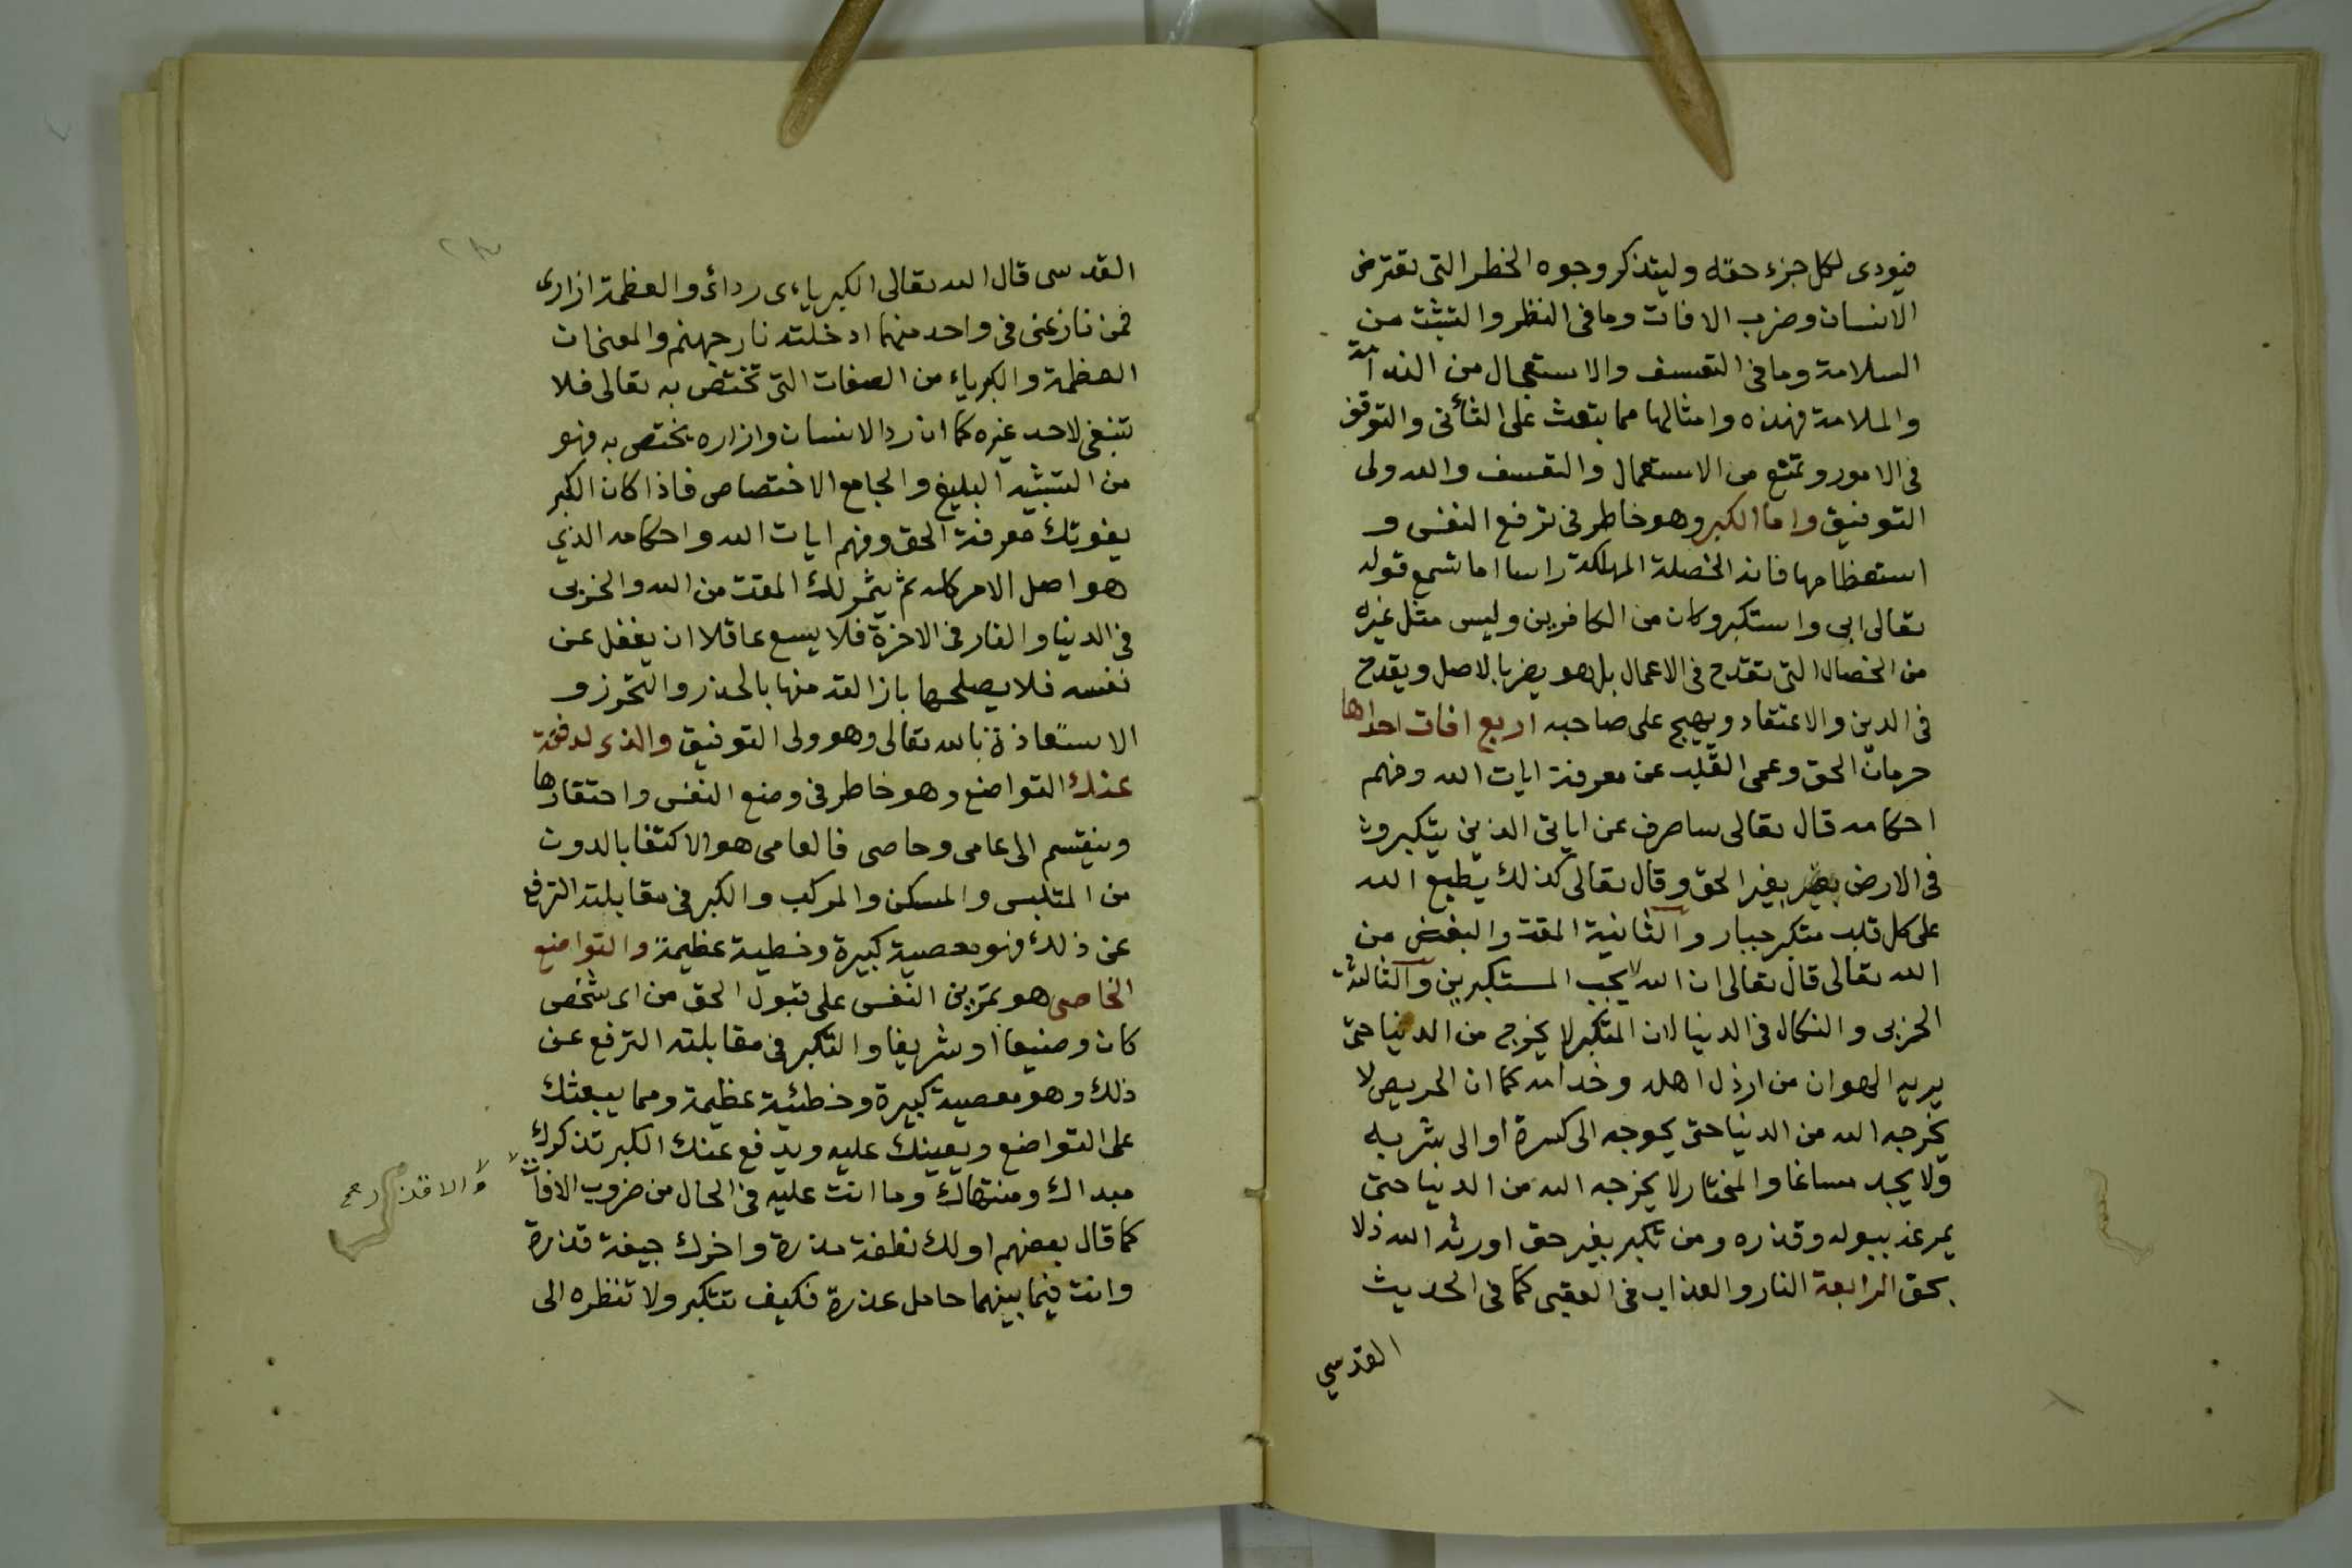 فيودى لكل جزء حقه وليتذكر وجوه الخطر التى تعترض
الانسان وضرب الافات وما فى النظر والتثبت من
السلامة وما فى التعسف والاستعجال من الندامة
والملامة فهذه وامثالها مما يبعث على التأنى والتوقف
فى الامور وتمنع من الاستعجال والتعسف والله ولى
التوفيق واما الكبر وهو خاطر فى ترفع النفس و
استعظامها فانه الخصلة المهلكة راسا اما تسمع قوله
تعالى ابى واستكبر وكان من الكافرين وليس مثل غيره
من الخصال التى تقدح فى الاعمال بل هو يضر بالاصل ويقدح
فى الدين والاعتقاد ويهيج على صاحبه اربع افات احداها
حرمان الحق وعمى القلب عن معرفة ايات الله وفهم
احكامه قال تعالى ساصرف عن اياتى الذين يتكبرون
فى الارض بغير الحق وقال تعالى كذلك يطبع الله
على كل قلب متكبر جبار والثانية المقت والبغض من
الله تعالى قال تعالى ان الله لا يحب المستكبرين والثالثة
الخزى والنكال فى الدنيا لان المتكبر لا يخرج من الدنيا حتى
يريه الهوان من ارذل اهله وخدامه كما ان الحريص لا
يخرجه الله من الدنيا حتى يحوجه الى كسرة او الى شربه
ولا يجد مساغا والمختار لا يخرجه الله من الدنيا حتى
يمرغه ببوله وقذره ومن تكبر بغير حق اورثه الله ذلا
بحق الرابعة النار والعذاب فى العقبى كما فى الحديث
القدسي
القدسى قال الله تعالى الكبرياءى ردائ والعظمة ازارى
فمن نازعنى فى واحد منهما ادخلته نار جهنم والمعنى ان
العظمة والكبرياء من الصفات التى تختص به تعالى فلا
تنبغى لاحد غيره كما ان ردا الانسان وازاره يختص به فهو
من التشبيه البليغ والجامع الاختصاص فاذا كان الكبر
يفوتك معرفة الحق وفهم ايات الله واحكامه الذي
هو اصل الامر كله ثم يثمر لك المقت من الله والخزى
فى الدنيا والنار فى الاخرة فلا يسع عاقلا ان يغفل عن
نفسه فلا يصلحها بازالته منها بالحذر والتحرز و
الاستعاذة بالله تعالى وهو ولى التوفيق والذى لدفعه
عنك التواضع وهو خاطر فى وضع النفس واحتقارها
وينقسم الى عامى وخاصى فالعامى هو الاكتفا بالدون
من الملبس والمسكن والمركب والكبر فى مقابلته الترفع
عن ذلك فهو معصية كبيرة وخطية عظيمة والتواضع
الخاصى هو تمرين النفس على قبول الحق من اى شخص
كان وضيعا او شريفا والتكبر فى مقابلته الترفع عن
ذلك وهو معصية كبيرة وخطئية عظيمة ومما يبعثك
على التواضع ويعينك عليه ويدفع عنك الكبر تذكرك
مبداك ومنتهاك وما انت عليه فى الحال من ضروب الافات
والاقذ
كما قال بعضهم اولك نطفة مذرة واخرك جيفة قذرة
وانت فيما بينهما حامل عذرة فكيف تتكبر ولا تنظره الى